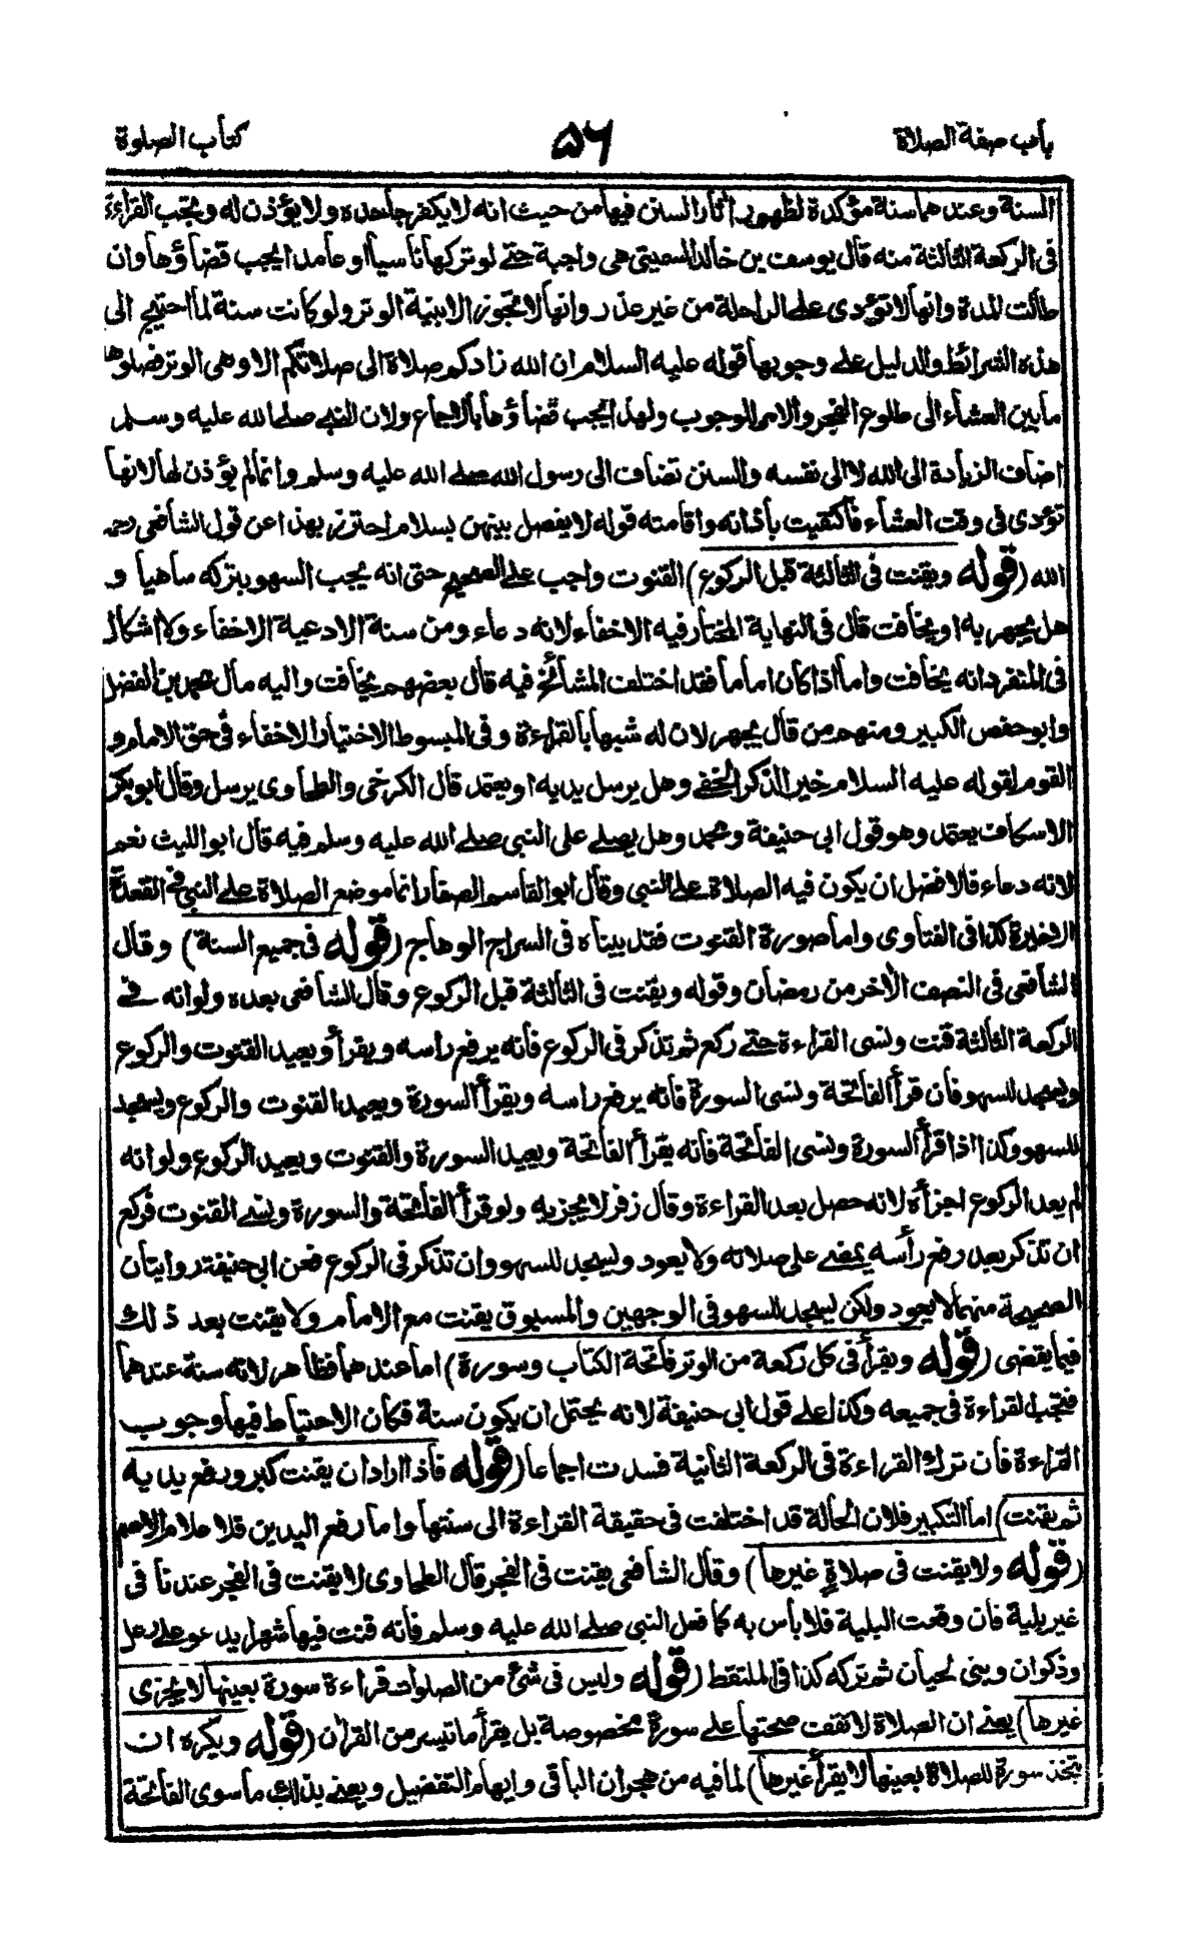 باب صفة الصلاة
٥٦
كتاب الصلوة
السنة وعندهما سنة مؤكدة لظهور اثار السنن فيها من حيث انه لا يكفر جاحده ولا يؤذن له ويجب القراءة
فى الركعة الثالثة منه قال يوسف بن خالد السميتى هى واجبة حتى لو تركها ناسيا او عامدا يجب قضاؤها وان
طالت المدة وانها لا تؤدى على الراحلة من غير عذر وانها لا تجوز الا بنية الوتر ولو كانت سنة لما احتيج الى
هذه الشرائط والدليل على وجوبها قوله عليه السلام ان الله زادكم صلاة الى صلاتكم الا وهى الوتر فصلوها
ما بين العشاء الى طلوع الفجر والامر للوجوب ولهذا يجب قضاؤها بالاجماع ولان النبى صلى الله عليه وسلم
اضاف الزيادة الى الله لا الى نفسه والسنن تضاف الى رسول الله صلى الله عليه وسلم وانما لم يؤذن لها لانها
تؤدى فى وقت العشاء فاكتفيت بأذانه واقامته قوله لا يفصل بينهن بسلام احترز بهذا عن قول الشافعى رحمه
الله (قوله ويقنت فى الثالثة قبل الركوع) القنوت واجب على الصحيح حتى انه يجب السهو بتركه ساهيا و
هل يجهر به او يخافت قال فى النهاية المختار فيه الاخفاء لانه دعاء ومن سنة الادعية الاخفاء ولا اشكال
فى المنفرد انه يخافت واما اذا كان اماما فقد اختلف المشائخ فيه قال بعضهم يخافت واليه مال محمد بن الفضل
وابو حفص الكبير ومنهم من قال يجهر لان له شبها بالقراءة وفى المبسوط الاختيار الاخفاء فى حق الامام و
القوم لقوله عليه السلام خير الذكر الخفى وهل يرسل يديه او يعتمد قال الكرخى والطحاوى يرسل وقال ابو بكر
الاسكاف يعتمد وهو قول ابى حنيفة ومحمد وهل يصلى على النبى صلى الله عليه وسلم فيه قال ابو الليث نعم
لانه دعاء فالافضل ان يكون فيه الصلاة على النبى وقال ابو القاسم الصفار انما موضع الصلاة على النبى فى القعدة
الاخيرة كذا فى الفتاوى واما صورة القنوت فقد بيناه فى السراج الوهاج (قوله فى جميع السنة) وقال
الشافعى فى النصف الأخر من رمضان وقوله ويقنت فى الثالثة قبل الركوع وقال الشافعى بعده ولو انه فى
الركعة الثالثة قنت ونسى القراءة حتى ركع ثم تذكر فى الركوع فانه يرفع راسه ويقرأ ويعيد القنوت والركوع
ويسجد للسهو فان قرأ الفاتحة ونسى السورة فانه يرفع راسه ويقرأ السورة ويعيد القنوت والركوع ويسجد
للسهو وكذا اذا قرأ السورة ونسى الفاتحة فانه يقرأ الفاتحة ويعيد السورة والقنوت ويعيد الركوع ولو انه
لم يعد الركوع اجزأه لانه حصل بعد القراءة وقال زفر لا يجزيه ولو قرأ الفاتحة والسورة ونسى القنوت فركع
ان تذكر بعد رفع رأسه يمضى على صلاته ولا يعود وليسجد للسهو وان تذكر فى الركوع فعن ابى حنيفة روايتان
الصحيحة منهما لا يعود ولكن ليسجد للسهو فى الوجهين والمسبوق يقنت مع الامام ولا يقنت بعد ذلك
فيما يقضى (قوله ويقرأ فى كل ركعة من الوتر فاتحة الكتاب وسورة) اما عندهما فظاهر لانه سنة عندهما
فتجب القراءة فى جميعه وكذا على قول ابى حنيفة لانه يحتمل ان يكون سنة فكان الاحتياط فيها وجوب
القراءة فان ترك القراءة فى الركعة الثانية فسدت اجماعا (قوله فاذا اراد ان يقنت كبر ورفع يديه
ثم يقنت) اما التكبير فلان الحالة قد اختلفت فى حقيقة القراءة الى سنتها واما رفع اليدين فلاعلام الاصم
(قوله ولا يقنت فى صلاةٍ غيرها) وقال الشافعى يقنت فى الفجر قال الطحاوى لا يقنت فى الفجر عندنا فى
غير بلية فان وقعت البلية فلا بأس به كما فعل النبى صلى الله عليه وسلم فانه قنت فيها شهرا يدعو على رعل
وذكوان وبنى لحيان ثم تركه كذا فى الملتقط (قوله وليس فى شئ من الصلوات قراءة سورة بعينها لا يجزى
غيرها) يعنى ان الصلاة لا تقف صحتها على سورة مخصوصة بل يقرأ ما تيسر من القرآن (قوله ويكره ان
يتخذ سورة للصلاة بعينها لا يقرأ غيرها) لما فيه من هجران الباقى وايهام التفضيل ويعنى بذلك ما سوى الفاتحة